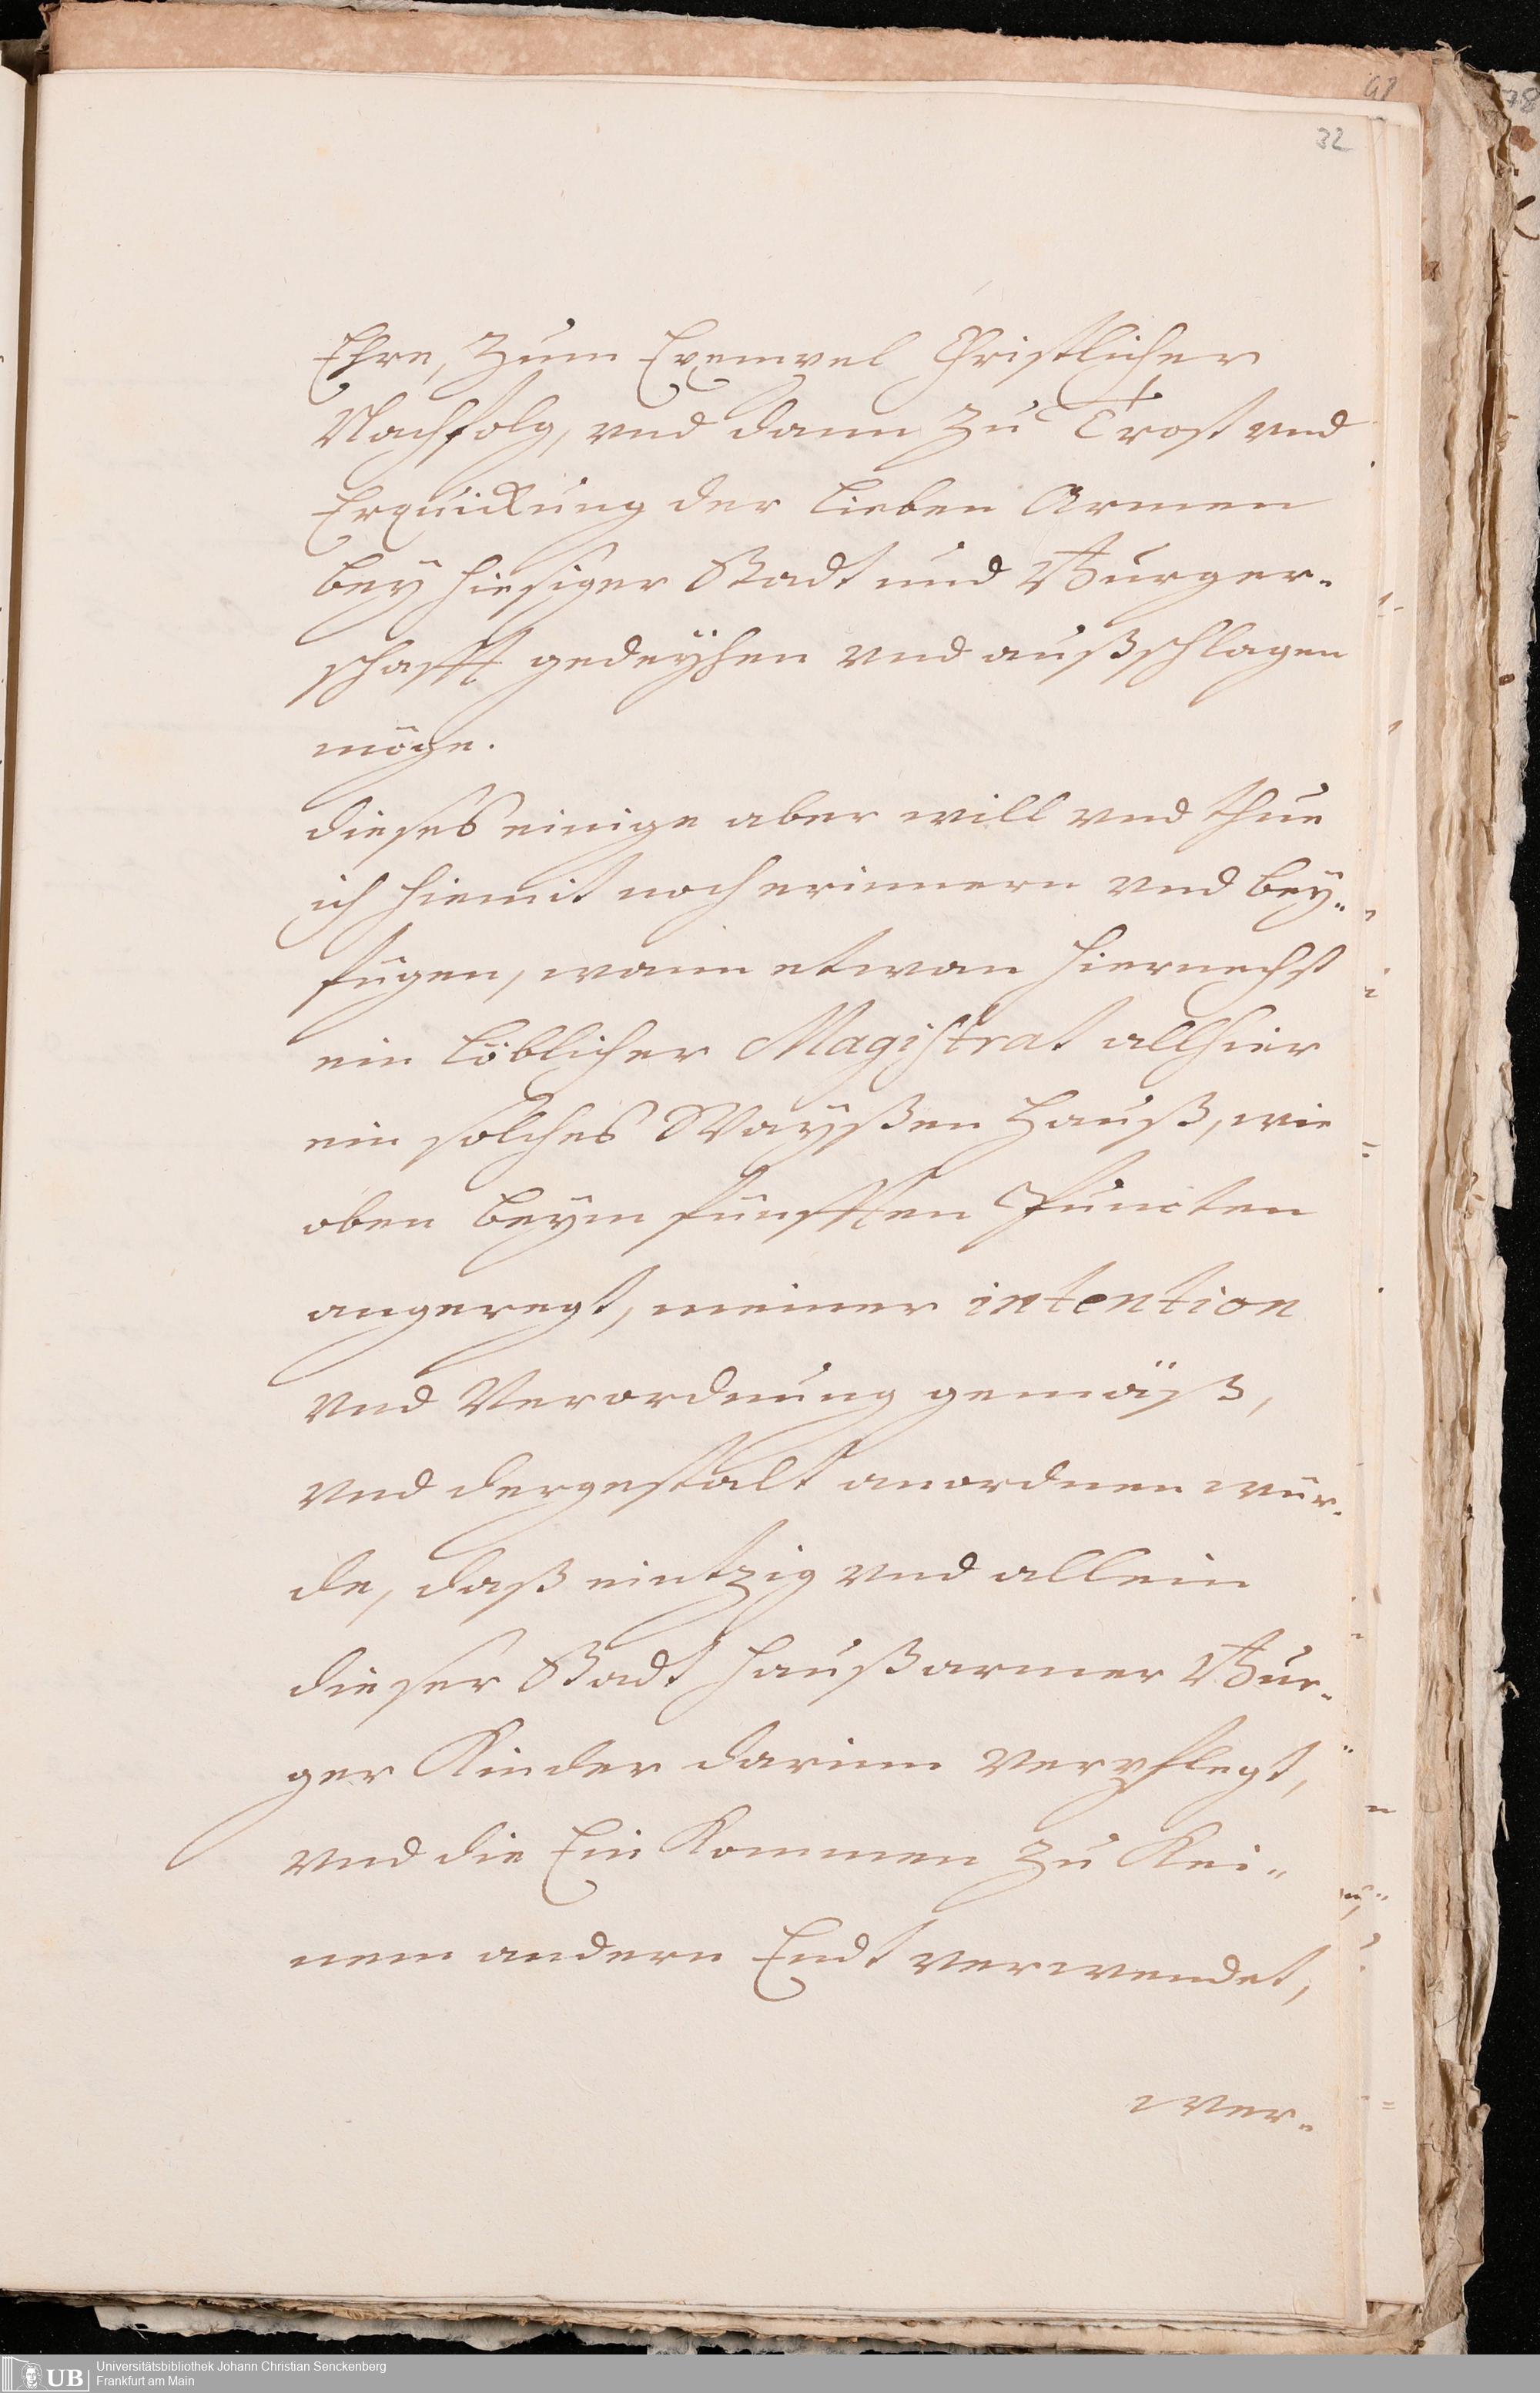 32
Ehre, zum Exempel Christlicher
Nachfolg, vnd dann zu Trost vnd
Erquickung der lieben Armen
bey hiesiger Stadt und Burger-
schafft gedeyhen vnd außschlagen
möge.
dieses einige aber will vnd thue
ich hiemit noch erinnern vnd bey-
fügen, wann etwan hiernechst
ein löblicher Magistrat allhier
ein solches Waysßen Hauß, wie
oben beym fünfften Puncten
angeregt, meiner intention
vnd Verordnung gemäß,
vnd dergestalt anordnen wür-
de, daß eintzig vnd allein
dieser Stadt haußarmer Bur-
ger Kinder darinn verpflegt,
vnd die Ein Kommen zu Kei-
nem andern Endt verwendet,
wer-
Universitätsbibliothek Johann Christian Senckenberg
Frankfurt am Main
UB